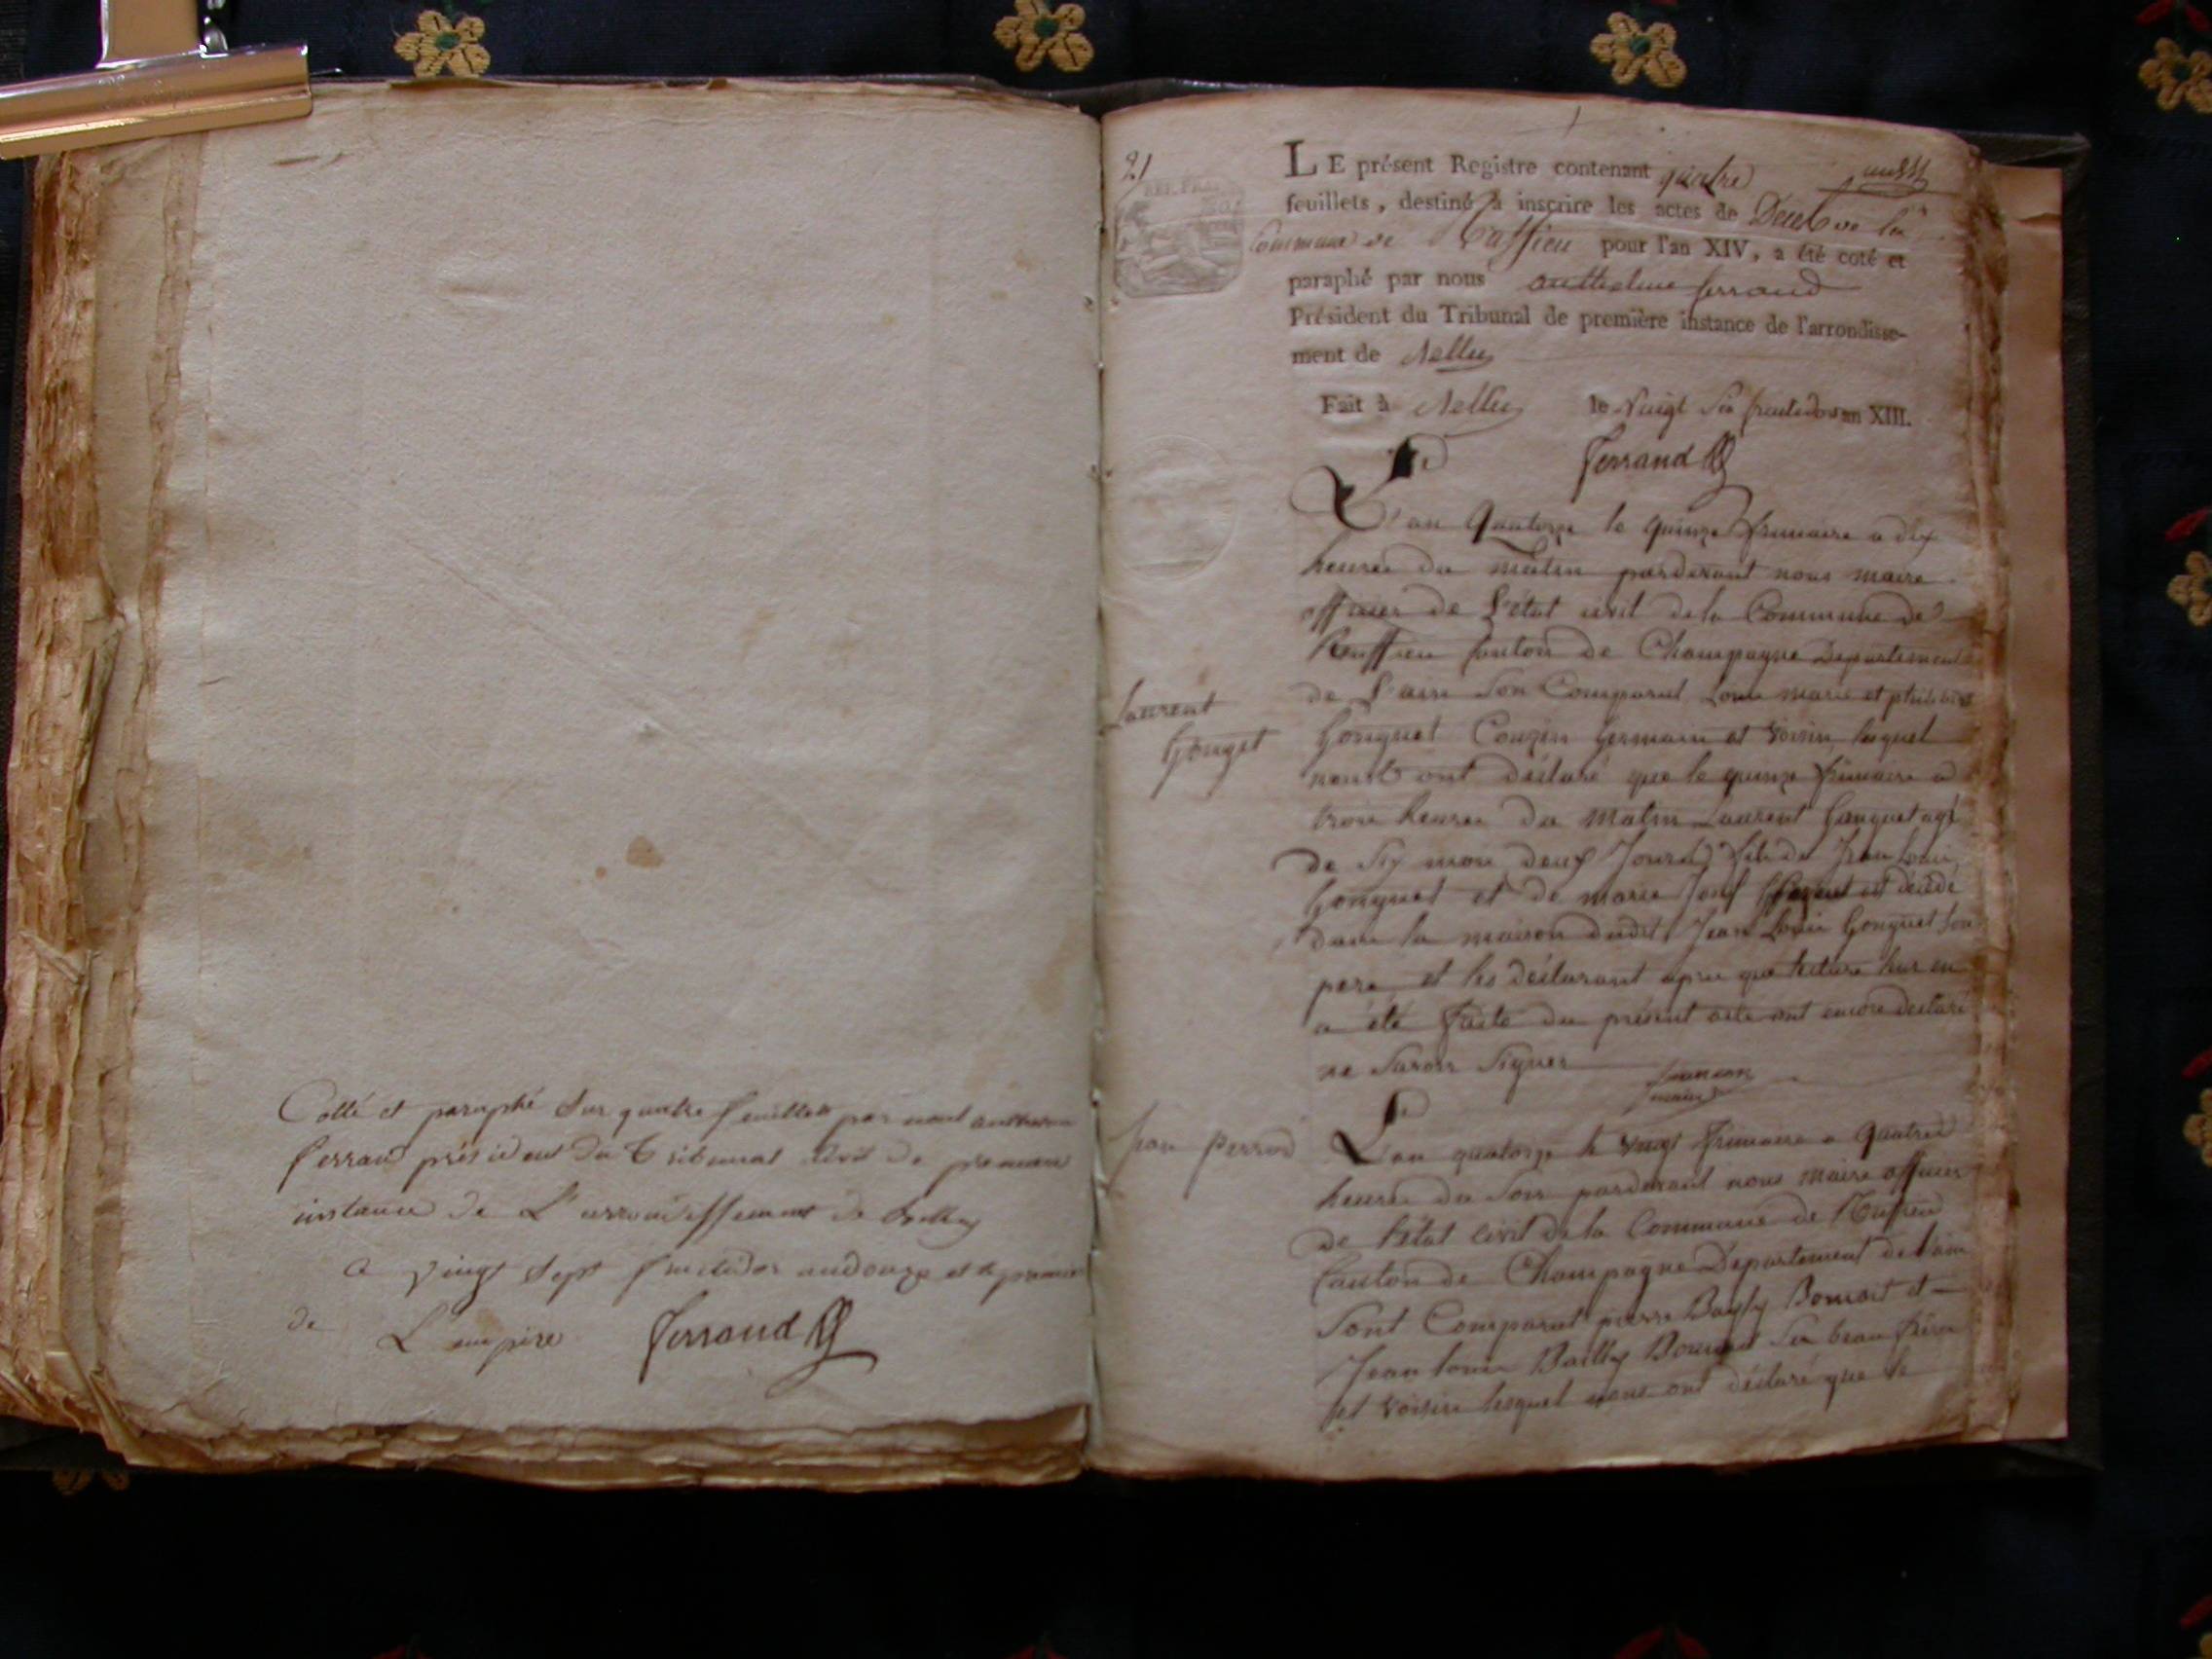 Collé et paraphé sur quatre feuillets par nous anthelme
ferrand président du Tribunal civil de premiere
instance de L'arrondissement de Belley
a vingt sept fructidor an douze et le premier
de L'empire ferrand
21
REP. FRA
LE présent Registre contenant quatre
feuillets, destiné à inscrire les actes de Décès de la
Commune de Ruffieu pour l'an XIV, a été coté et
paraphé par nous anthelme ferrand
Président du Tribunal de première instance de l'arrondisse-
ment de Belley
Fait à Belley le vingt six fructidor an XIII.
ferrand
Laurent
Gonguet
L'an Quatorze le quinze frimaire a dix
heures du matin pardevant nous maire
officier de L'état civil de la Commune de
Ruffieu Canton de Champagne Departement
de L'ain son Comparut Louis marie et philibert
Gonguet Couzin germain et voisin lesquel
nous ont déclaré que le quinze frimaire a
trois heures du matin Laurent Gonguet agé
de six mois deux Jours fils de Jean Louis
Gonguet et de marie est décédé
dans la maison dudit Jean Louis Gonguet son
pere et les déclarant apres que lecture leur en
a été faite du présent acte ont encore déclaré
ne savoir signer
maire
Jean perrod
L'an quatorze le vingt frimaire a quatre
heures du soir pardevant nous maire officier
de l'état civil de la Commune de Ruffieu
Canton de Champagne Departement de l'ain
Sont Comparut pierre Bailly et
Jean Louis Bailly beau frère
et voisin lesquel nous ont déclaré que le